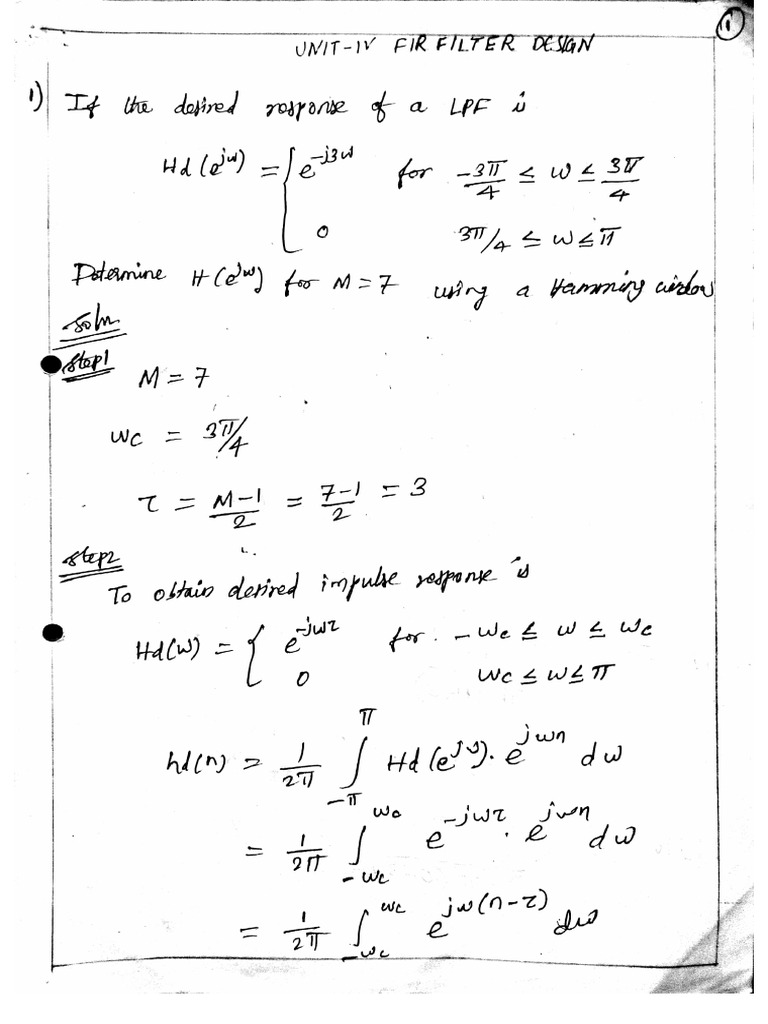 1
UNIT-IV FIR FILTER DESIGN
1) If the desired response of a LPF is
Hd(e^jω) = { e^-j3ω for -3π/4 ≤ ω ≤ 3π/4
0 3π/4 ≤ ω ≤ π
Determine H(e^jω) for M=7 using a Hamming window
Soln
Step1
M = 7
ωc = 3π/4
τ = M-1/2 = 7-1/2 = 3
Step2
To obtain desired impulse response is
Hd(ω) = { e^-jωτ for -ωc ≤ ω ≤ ωc
0 ωc ≤ ω ≤ π
hd(n) = 1/2π ∫_-π^π Hd(e^jω). e^jωn dω
= 1/2π ∫_-ωc^ωc e^-jωτ . e^jωn dω
= 1/2π ∫_-ωc^ωc e^jω(n-τ) dω